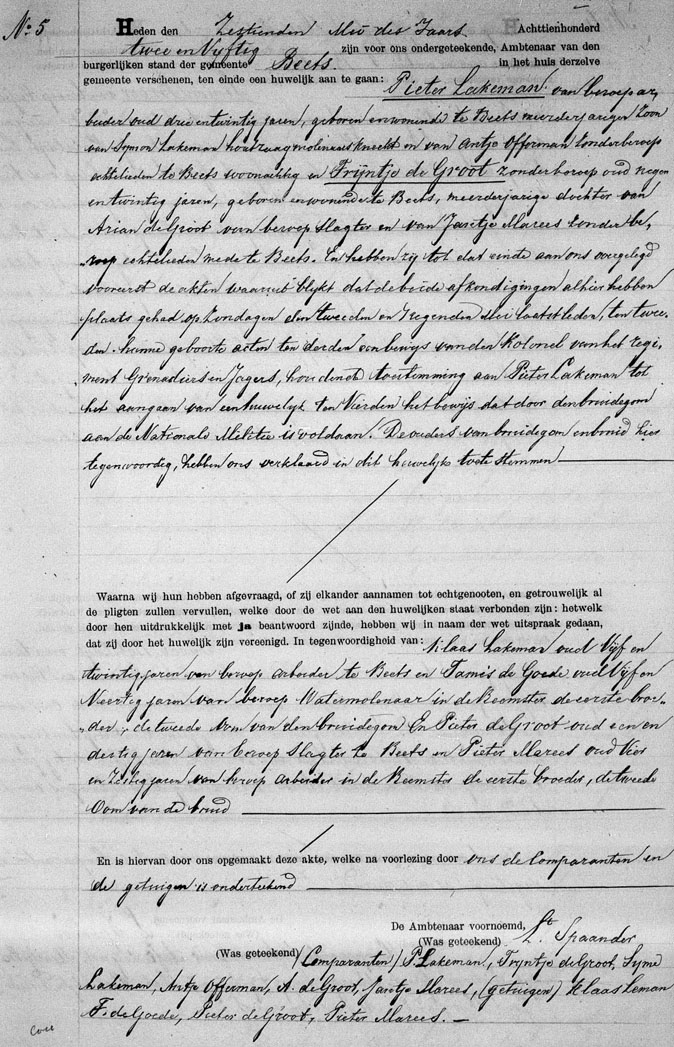 No 5
Heden den Zestienden Mei des Jaars Achttienhonderd
twee en Vyftig zijn voor ons ondergeteekende, Ambtenaar van den
burgerlijken stand der gemeente Beets. in het huis derzelve
gemeente verschenen, ten einde een huwelijk aan te gaan: Pieter Lakeman van beroep ar„
beider oud drie en twintig jaren, geboren en wonende te Beets meerderjarigen Zoon
van Symon Lakeman houtzaagmolenaarsknecht en van Antje Offerman Zonder beroep
echtelieden te Beets woonachtig en Trijntje de Groot zonder beroep oud negen
en twintig jaren, geboren en wonende te Beets, meerderjarige dochter van
Arian de Groot van beroep Slagter en van Jansetje Marees zonder be„
„roep echtelieden mede te Beets. En hebben zij tot dat einde aan ons overgelegd
vooreerst de akten waaruit blykt dat de beide afkondigingen alhier hebben
plaats gehad op Zondagen den tweeden en Negenden Mei laatstleden, ten twee„
den hunne geboorte acten ten derden een bewys van den Kolonel van het regi„
„ment Grenadiers en Jagers, houdende toestemming aan Pieter Lakeman tot
het aangaan van een huwelyk ten Vierden het bewijs dat door den bruidegom
aan de Nationale Militie is voldaan. De ouders van bruidegom en bruid hier
tegenwoordig, hebben ons verklaard in dit huwelijk toe te stemmen
Waarna wij hun hebben afgevraagd, of zij elkander aannamen tot echtgenooten, en getrouwelijk al
de pligten zullen vervullen, welke door de wet aan den huwelijken staat verbonden zijn: hetwelk
door hen uitdrukkelijk met ja beantwoord zijnde, hebben wij in naam der wet uitspraak gedaan,
dat zij door het huwelijk zijn vereenigd. In tegenwoordigheid van: Klaas Lakeman oud Vijf en
twintig jaren van beroep arbeider te Beets en Tamis de Goede oud Vijf en
Veertig jaren van beroep Watermolenaar in de Beemster de eerste broe„
„der, de tweede oom van den bruidegom En Pieter de Groot oud een en
dertig jaren van beroep Slagter te Beets en Pieter Marees oud Vier
en Zestig jaren van beroep arbeider in de Beemster de eerste broeder, de tweede
Oom van de bruid
En is hiervan door ons opgemaakt deze akte, welke na voorlezing door ons de Comparanten en
de getuigen is onderteekend
De Ambtenaar voornoemd,
(Was geteekend) Lt. Spaander
(Was geteekend) (Comparanten) P. Lakeman, Trijntje de Groot, Syme
Lakeman, Antje Offerman, A. de Groot, Jantje Marees, (getuigen) Klaas Leman
T. de Goede, Pieter de Groot, Pieter Marees. —